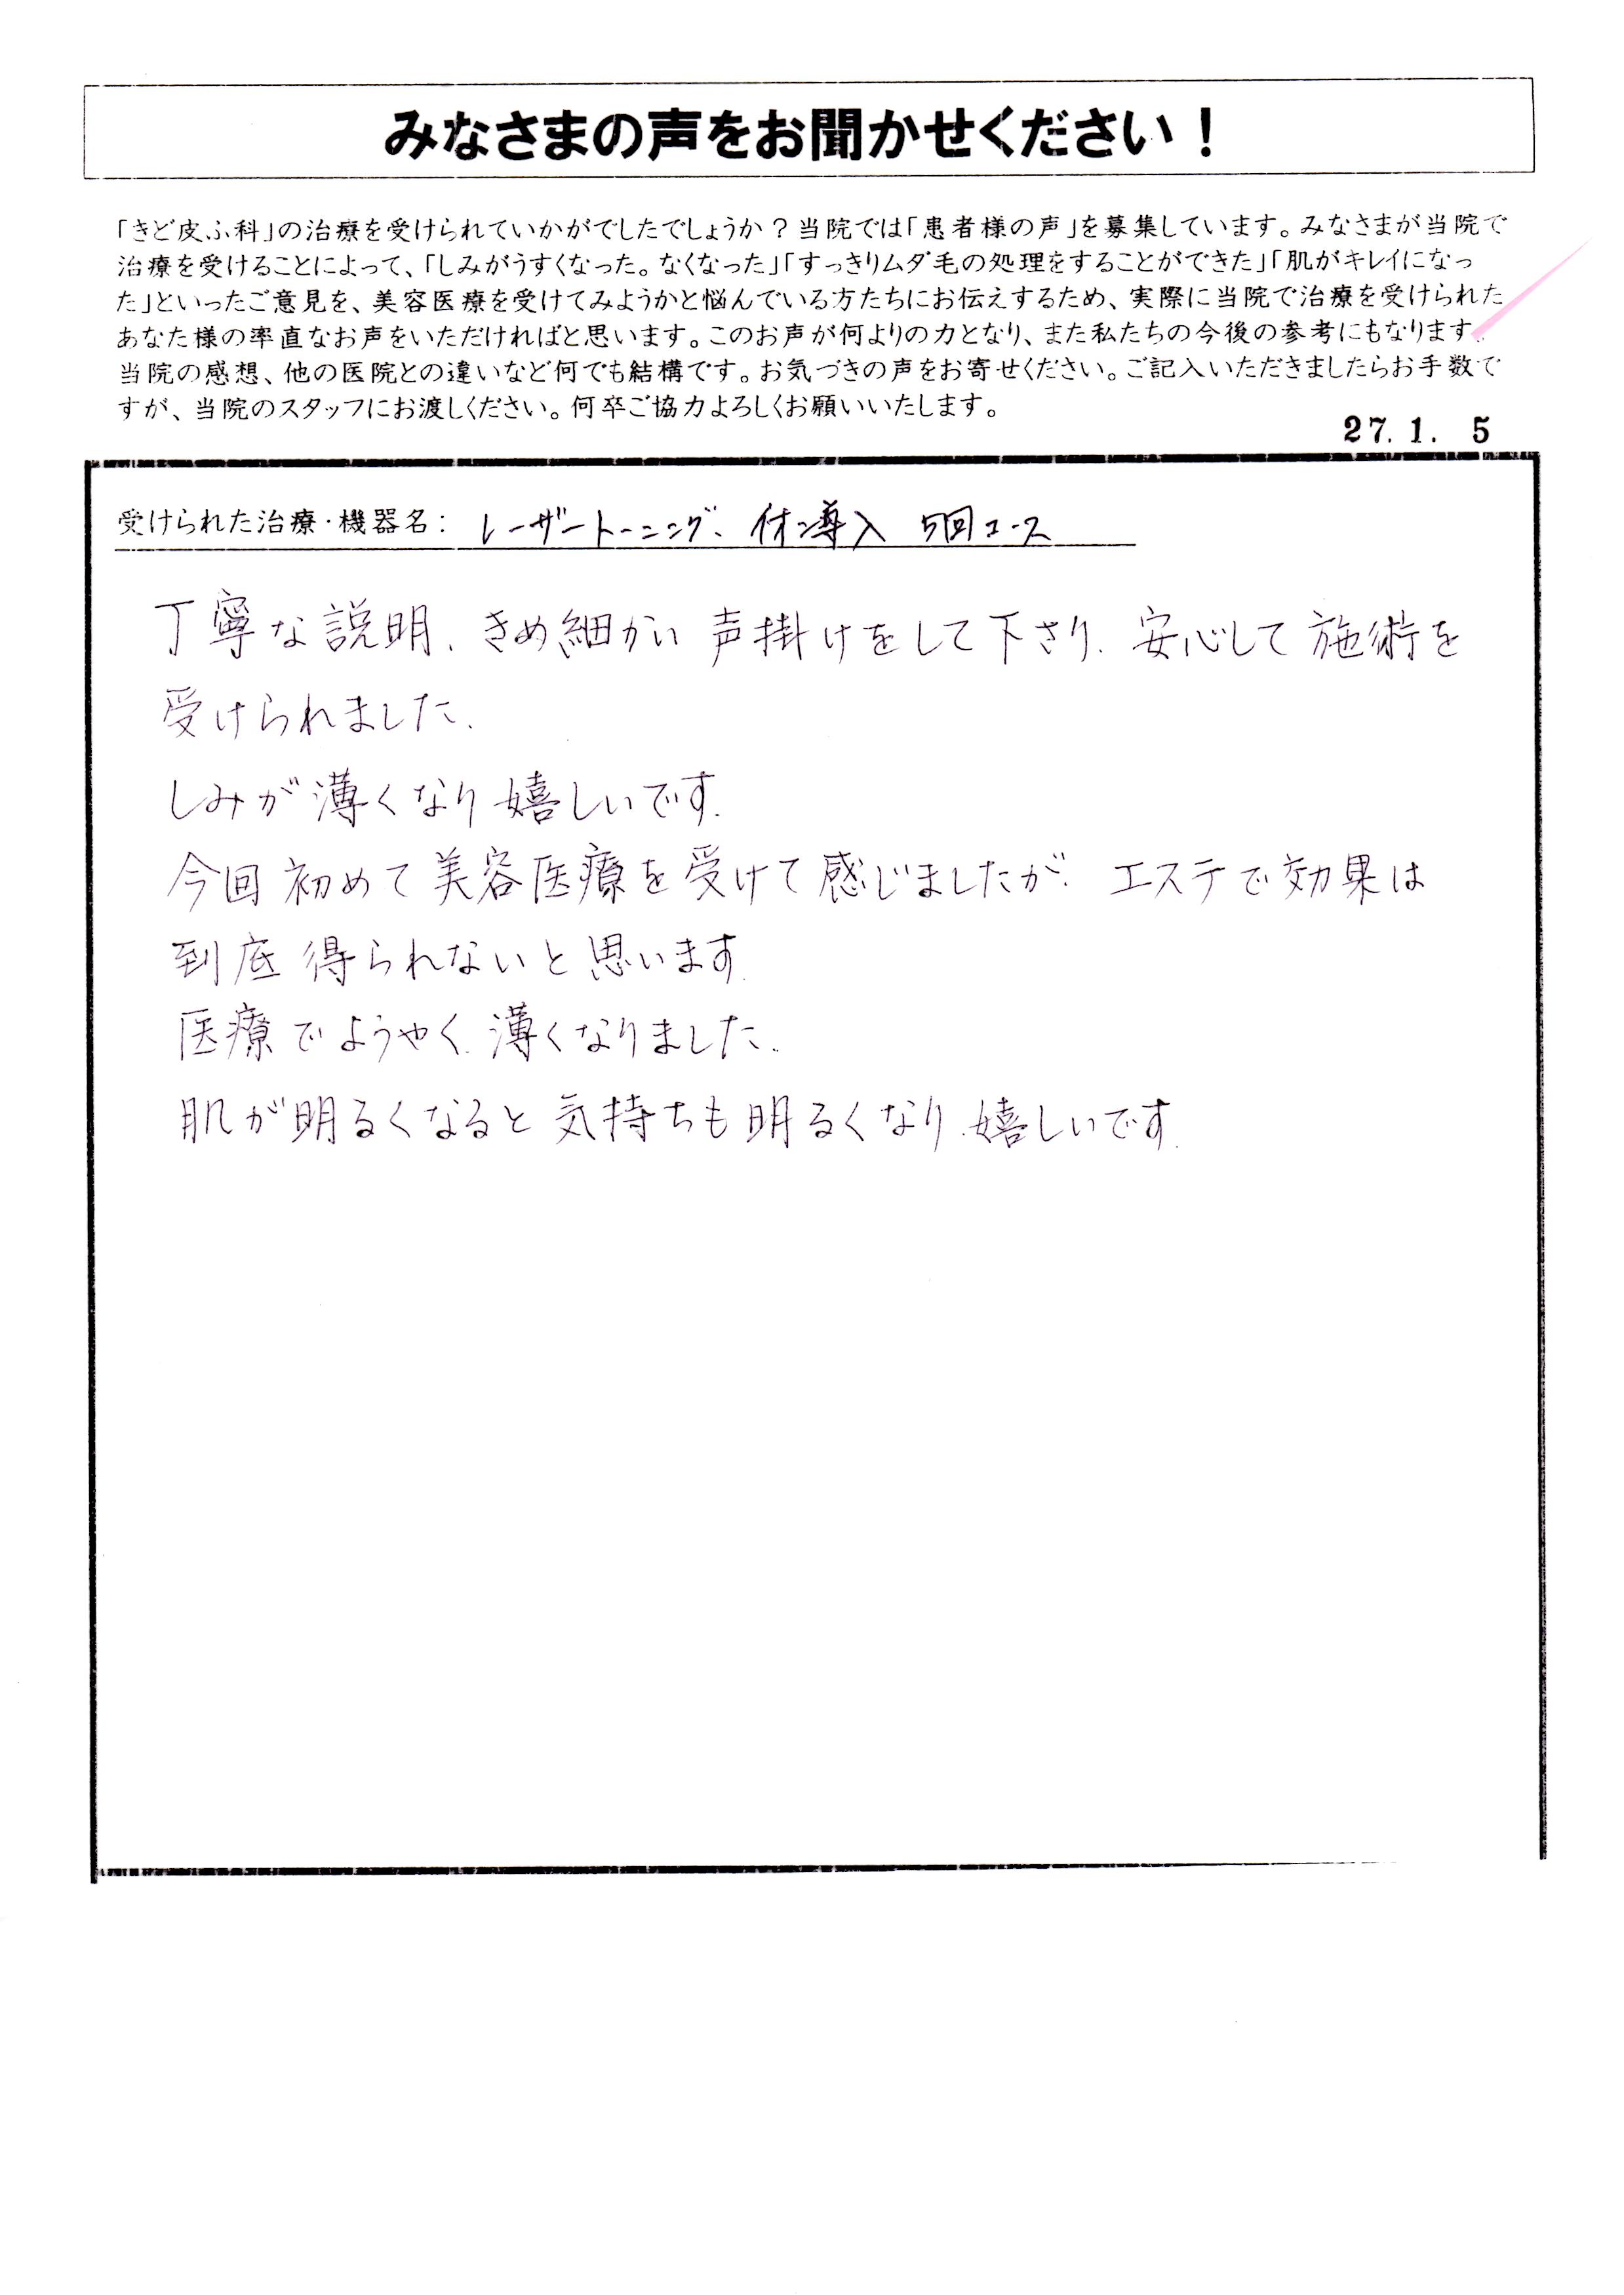 みなさまの声をお聞かせください！
「きど皮ふ科」の治療を受けられていかがでしたでしょうか？当院では「患者様の声」を募集しています。みなさまが当院で
治療を受けることによって、「しみがうすくなった。なくなった」「すっきりムダ毛の処理をすることができた」「肌がキレイになっ
た」といったご意見を、美容医療を受けてみようかと悩んでいる方たちにお伝えするため、実際に当院で治療を受けられた
あなた様の率直なお声をいただければと思います。このお声が何よりの力となり、また私たちの今後の参考にもなります。
当院の感想、他の医院との違いなど何でも結構です。お気づきの声をお寄せください。ご記入いただきましたらお手数で
すが、当院のスタッフにお渡しください。何卒ご協力よろしくお願いいたします。
27. 1. 5
受けられた治療・機器名： レーザートーニング、イオン導入 5回コース
丁寧な説明、きめ細かい声掛けをして下さり、安心して施術を
受けられました。
しみが薄くなり嬉しいです。
今回初めて美容医療を受けて感じましたが、エステで効果は
到底得られないと思います。
医療でようやく、薄くなりました。
肌が明るくなると気持ちも明るくなり、嬉しいです。